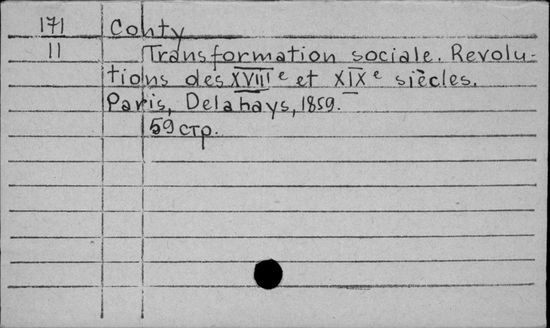 171 Conty
11 Transformation sociale. Revolu-
tions des XVIIIe et XIXe siècles.
Paris, Delahays, 1859.
59 стр.